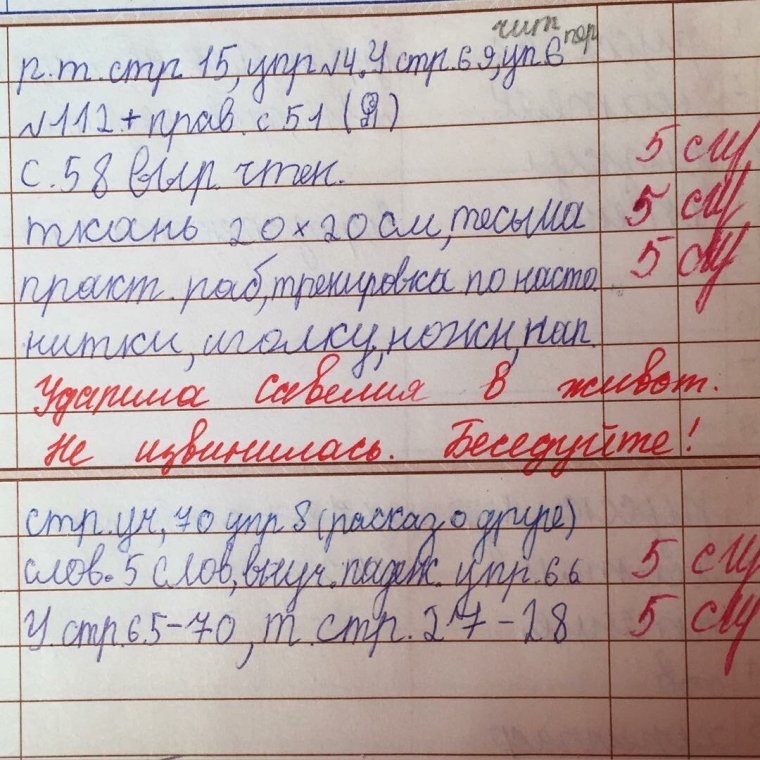 чит пер
р.т. стр. 15, упр №4. У стр. 69, уп 6
№112 + прав. с 51 (Я)
с. 58 выр. чтен. 5
ткань 20×20 см, тесьма 5
практ. раб, тренировка по насто 5
нитки, иголку, ножн, нап.
Ударила Савелия в живот.
Не извинилась. Беседуйте!
стр. уч, 70 упр 8 (расказ о друге)
слов. 5 слов, выуч. падеж. упр. 66 5
У. стр. 65-70, т. стр. 27-28 5